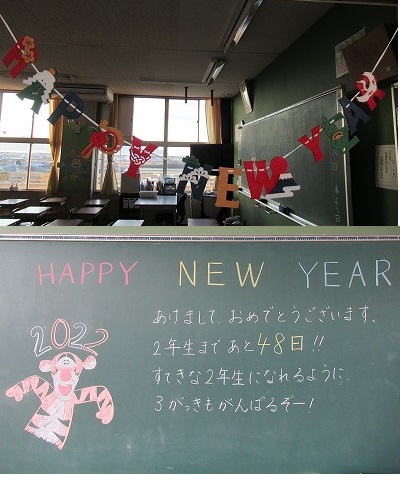 HAPPY NEW YEAR
HAPPY NEW YEAR
2022
あけまして、おめでとうございます。
2年生まで あと48日!!
すてきな2年生になれるように、
3がっきもがんばるぞー!